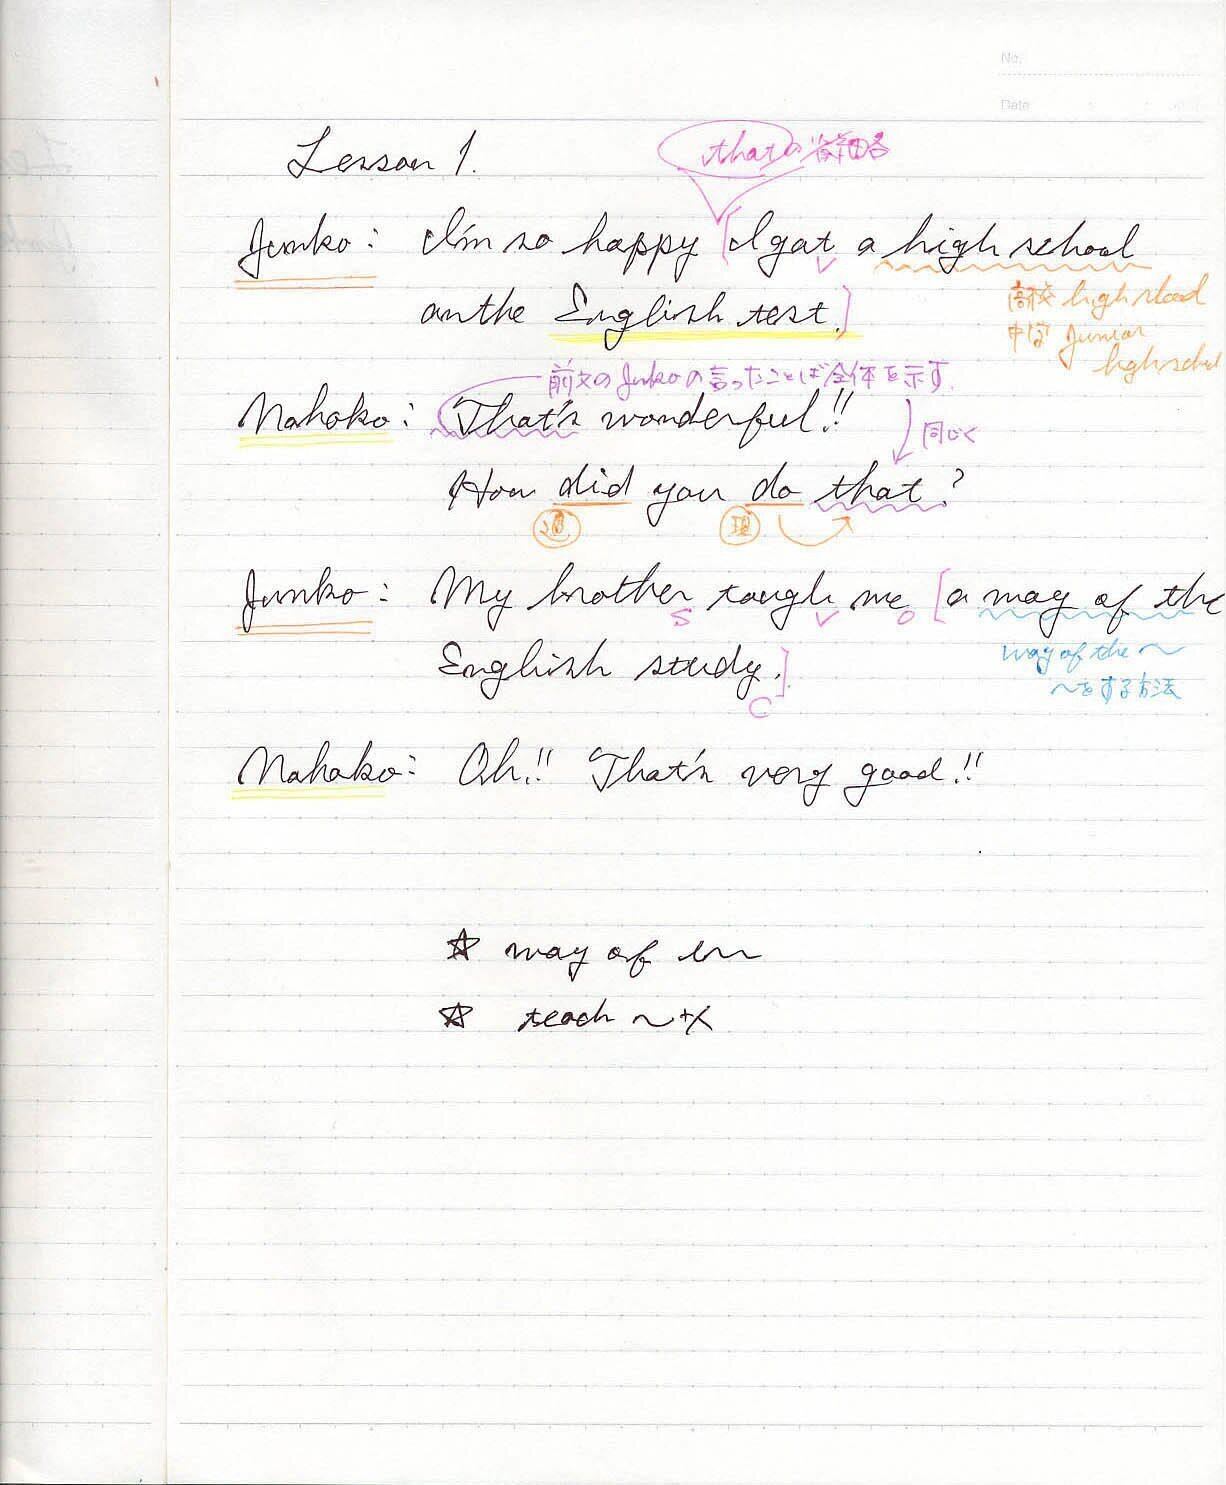 No.
Date
thatの省略
Lesson 1.
Junko: I'm so happy [I got a high school
v
on the English test.]
高校 high shool
中学 Junior
high school
前文のJunkoの言ったことば全体を示す.
Nahoko: That's wonderful!!
同じく
How did you do that?
過 現
Junko: My brother tough me [a way of the
S V O
English study.]
C
way of the 〜
〜をする方法
Nahoko: Oh!! That's very good!!
☆ way of 〜
☆ teach 〜+X